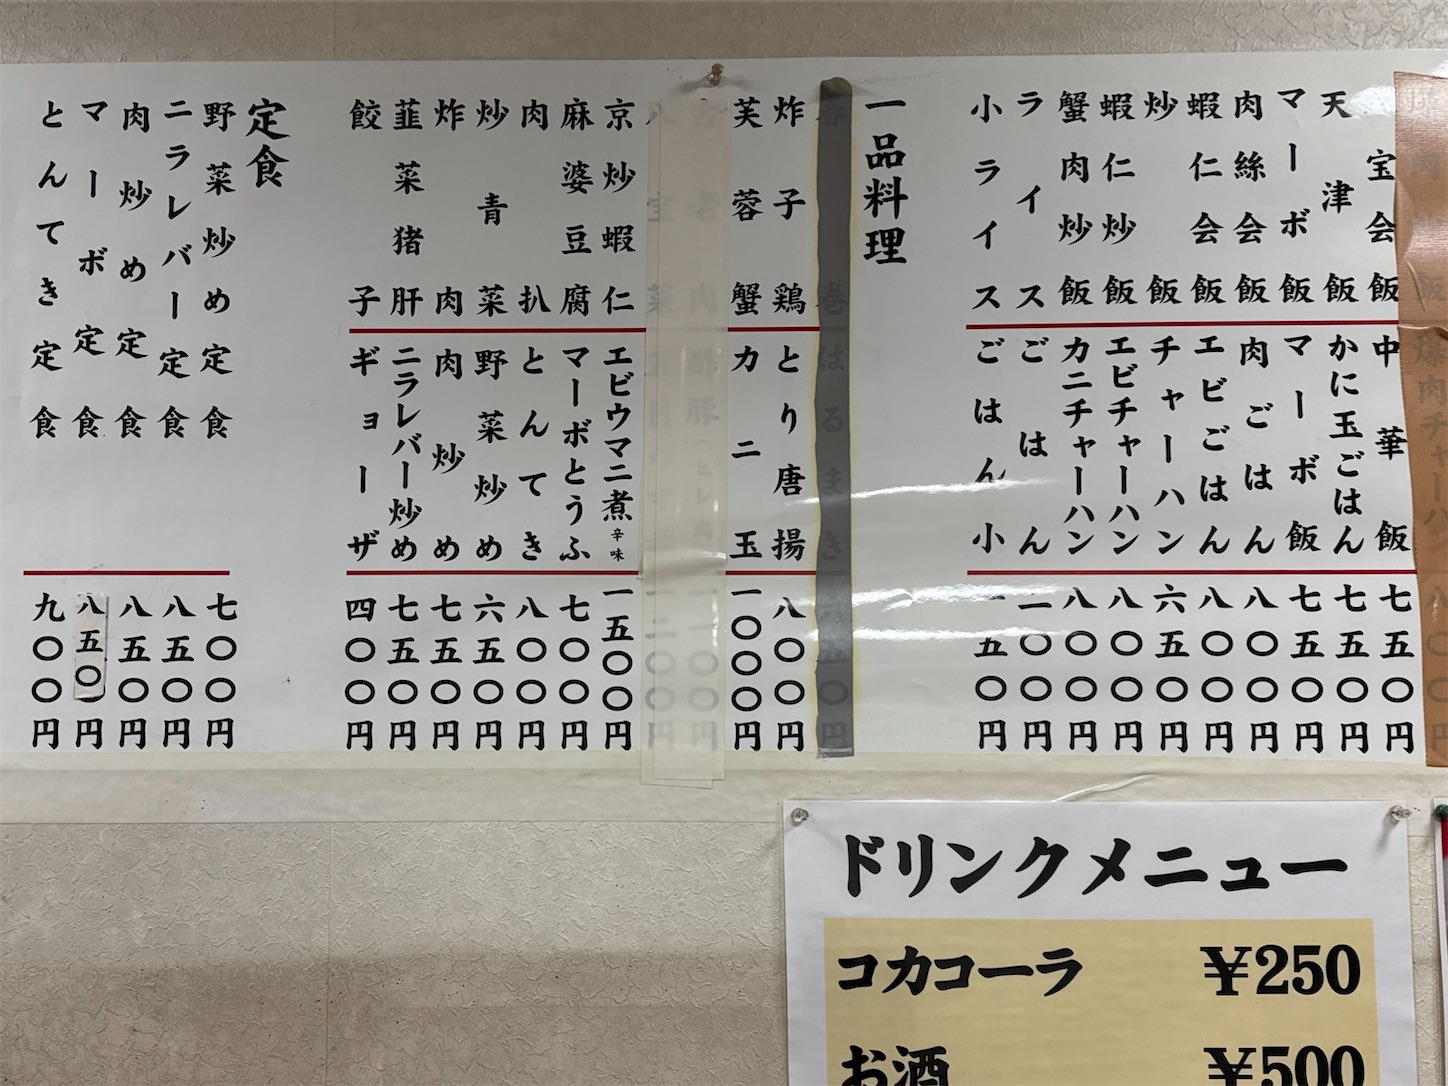 宝会飯 中華飯 七五〇円
天津飯 かに玉ごはん 七五〇円
マーボ飯 マーボ飯 七五〇円
肉絲会飯 肉ごはん 八〇〇円
蝦仁会飯 エビごはん 八〇〇円
炒飯 チャーハン 六五〇円
蝦仁炒飯 エビチャーハン 八〇〇円
蟹肉炒飯 カニチャーハン 八〇〇円
ライス ごはん 二〇〇円
小ライス ごはん小 一五〇円
一品料理
春巻 はるまき 五〇円
炸子鶏 とり唐揚 八〇〇円
芙蓉蟹 カニ玉 一〇〇〇円
古老肉 酢豚
八宝菜 一二〇〇円
京炒蝦仁 エビウマニ煮辛味 一五〇〇円
麻婆豆腐 マーボとうふ 七〇〇円
肉扒 とんてき 八〇〇円
炒青菜 野菜炒め 六五〇円
炸肉 肉炒め 七五〇円
韮菜猪肝 ニラレバー炒め 七五〇円
餃子 ギョーザ 四〇〇円
定食
野菜炒め定食 七〇〇円
ニラレバー定食 八五〇円
肉炒め定食 八五〇円
マーボ定食 八五〇円
とんてき定食 九〇〇円
ドリンクメニュー
コカコーラ ¥250
お酒 ¥500